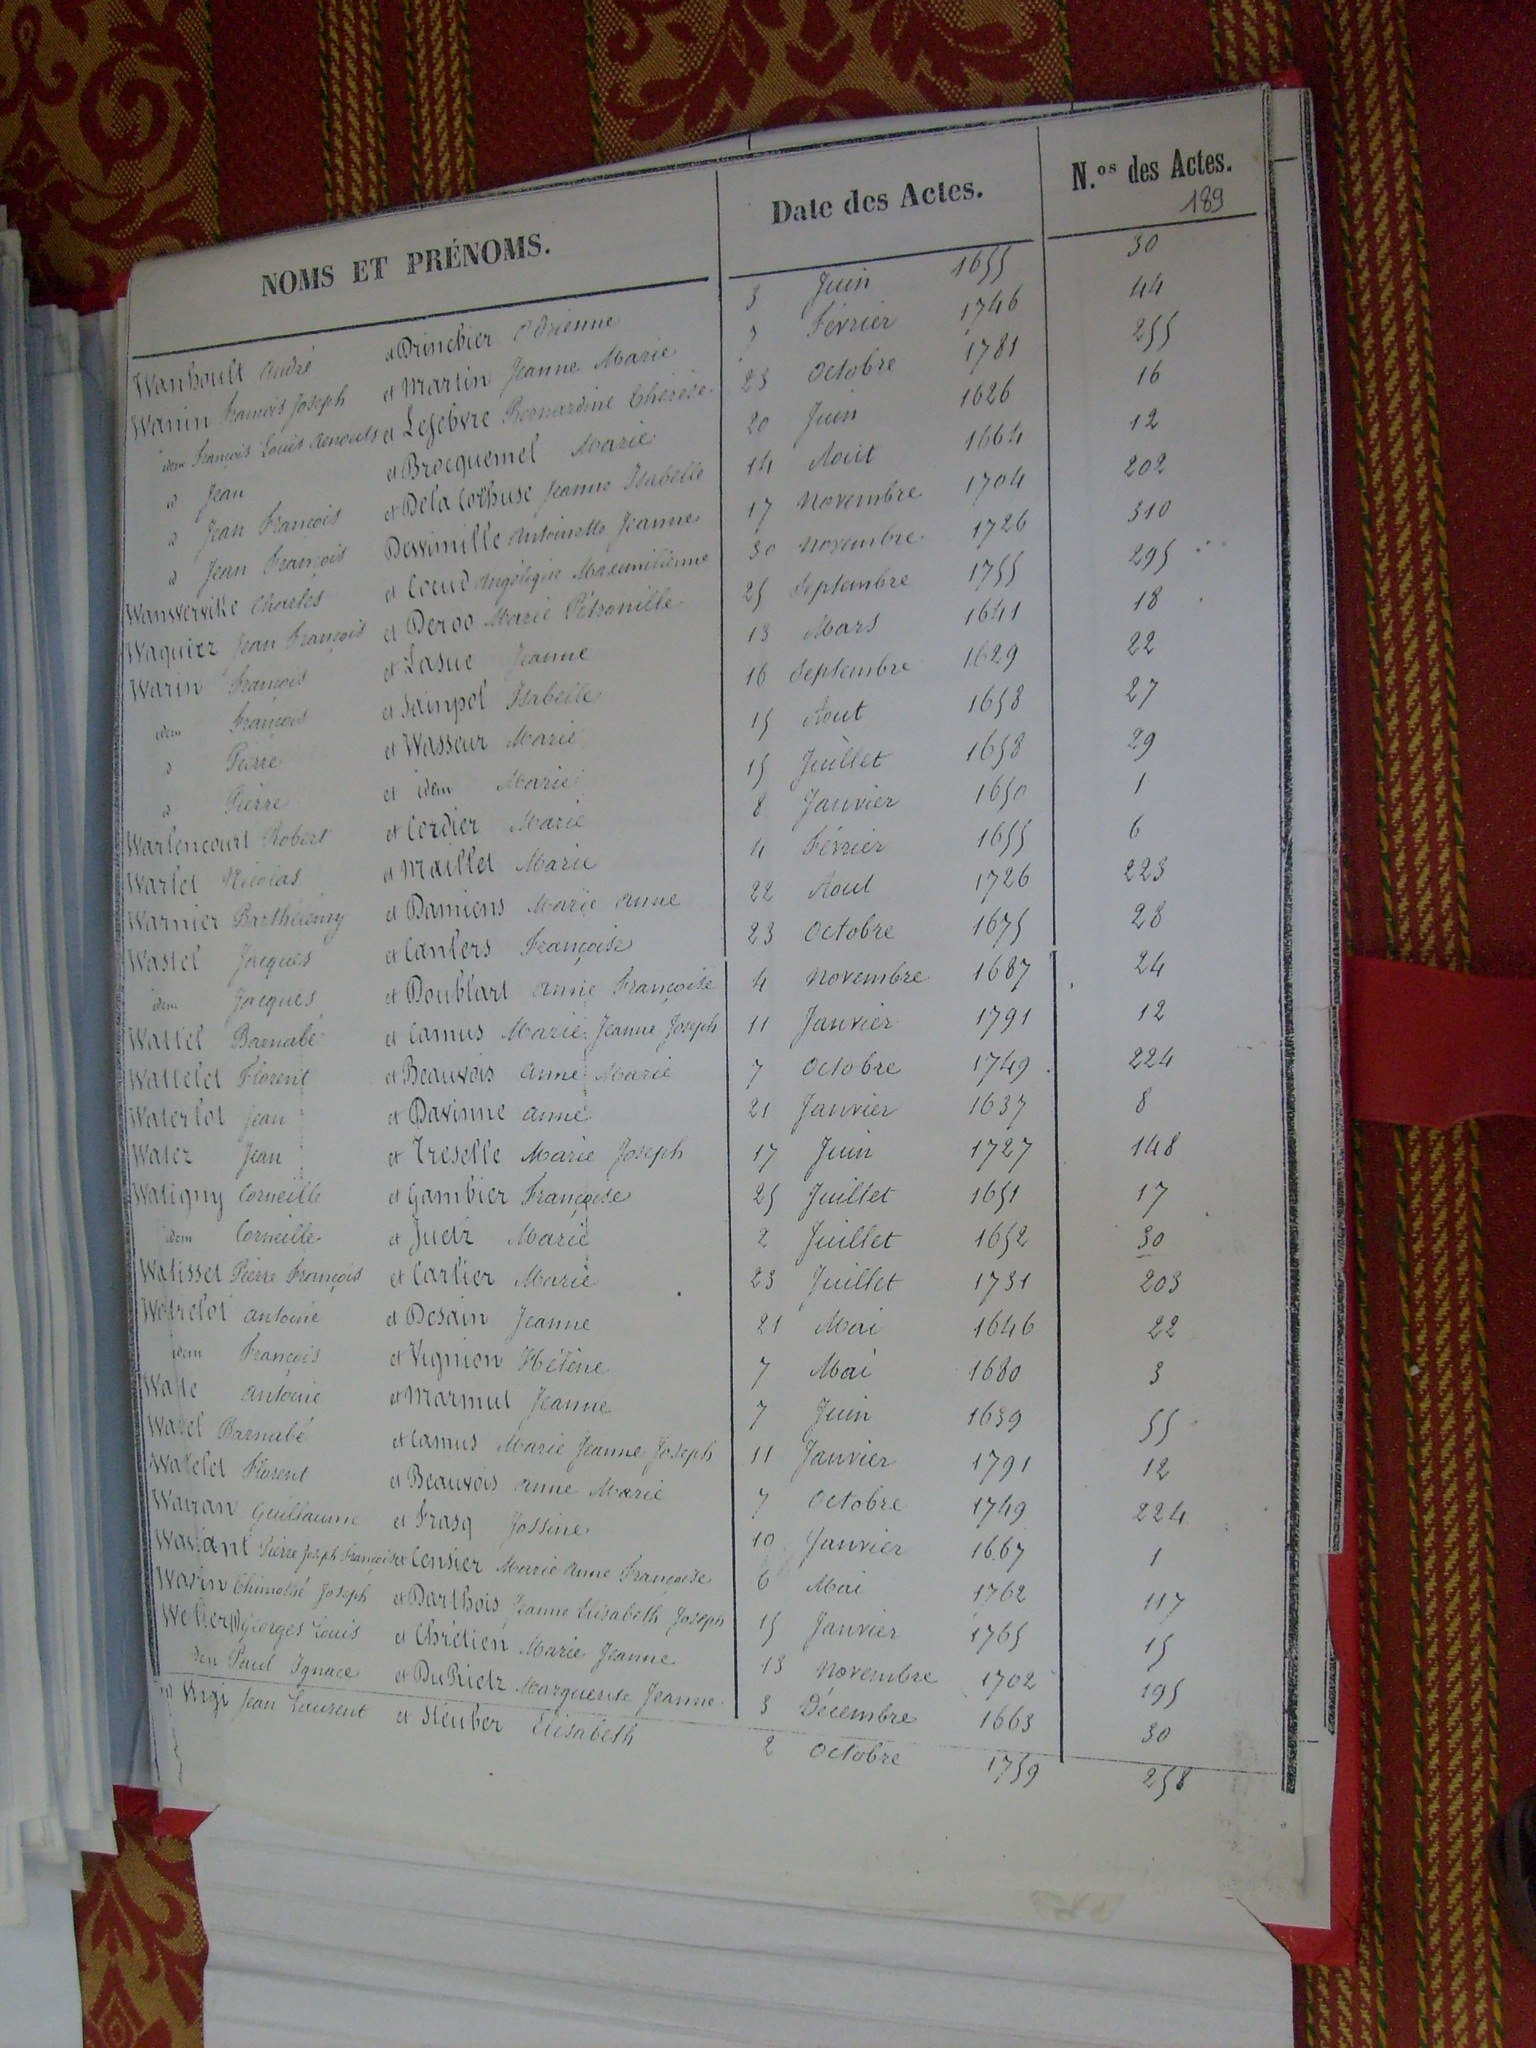 NOMS ET PRÉNOMS. Date des Actes. N.os des Actes.
189
Wanhoult André et Drinchier Adrienne 3 Juin 1655 30
Wanin François Joseph et Martin Jeanne Marie 7 Février 1746 44
idem François Louis et Lefebvre Bernardine Thérèse 23 Octobre 1781 255
d Jean et Brocquemel Marie 20 Juin 1626 16
d Jean François et Dela Cochuse Jeanne Isabelle 14 Aout 1664 12
d Jean François Dewimille Antoinette Jeanne 17 Novembre 1704 202
Wanwerville Charles et Coeud Angélique Maximilienne 30 Novembre 1726 310
Waquiez Jean François et Deroo Marie Pétronille 25 Septembre 1755 295
Warin François et Lasue Jeanne 13 Mars 1641 18
idem François et Sainpol Isabelle 16 Septembre 1629 22
d Pierre et Wasseur Marie 15 Aout 1658 27
d Pierre et idem Marie 15 Juillet 1658 29
Warlencourt Robert et Cerdier Marie 8 Janvier 1650 1
Warlet Nicolas et Maillet Marie 4 Février 1655 6
Warnier Barthélemy et Damiens Marie Anne 22 Aout 1726 223
Wastel Jacques et Canlers Françoise 23 Octobre 1675 28
idem Jacques et Doublart Anne Françoise 4 Novembre 1687 24
Wattel Barnabé et Camus Marie Jeanne Joseph 11 Janvier 1791 12
Wattelet Florent et Beauvois Anne Marie 7 Octobre 1749 224
Waterlot Jean et Davinne Anne 21 Janvier 1637 8
Watez Jean et Treselle Marie Joseph 17 Juin 1727 148
Watigny Corneille et Gambier Françoise 25 Juillet 1651 17
idem Corneille et Juetz Marie 2 Juillet 1652 30
Watisset Pierre François et Carlier Marie 23 Juillet 1731 203
Watrelot Antoine et Desain Jeanne 21 Mai 1646 22
idem François et Vignion Hélène 7 Mai 1680 3
Antoine et Marmut Jeanne 7 Juin 1639 55
Watel Barnabé et Camus Marie Jeanne Joseph 11 Janvier 1791 12
Watelet Florent et Beauvois Anne Marie 7 Octobre 1749 224
Guillaume et Frasq Jossine 10 Janvier 1667 1
Pierre Joseph François et Censier Marie Anne Françoise 6 Mai 1762 117
Thimothé Joseph et Darthois Jeanne Elisabeth Joseph 15 Janvier 1765 15
Georges Louis et Chrétien Marie Jeanne 13 Novembre 1702 195
Paul Ignace et DuRietz Marguerite Jeanne 3 Décembre 1663 30
Jean Laurent et Steuber Elisabeth 2 Octobre 1759 258